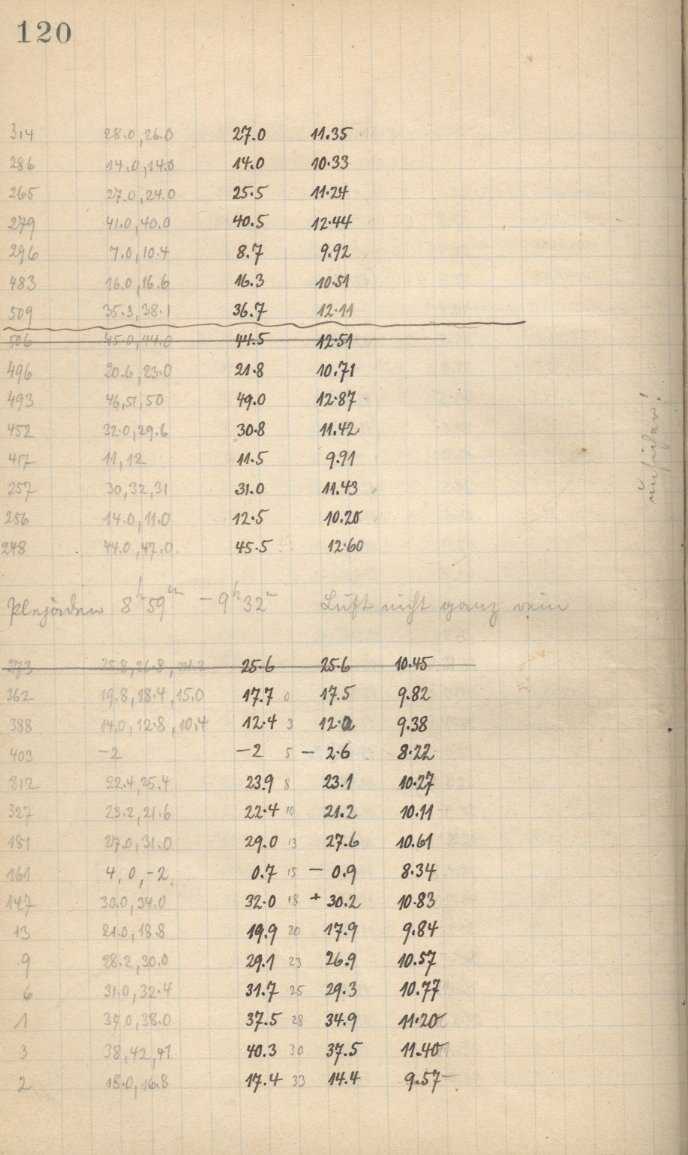 120
314 28.0, 26.0 27.0 11.35
286 14.0, 14.0 14.0 10.33
265 27.0, 24.0 25.5 11.24
279 41.0, 40.0 40.5 12.44
296 7.0, 10.4 8.7 9.92
483 16.0, 16.6 16.3 10.51
509 35.3, 38.1 36.7 12.11
506 45.0, 44.0 44.5 12.51
496 20.6, 23.0 21.8 10.71
493 46, 51, 50 49.0 12.87
452 32.0, 29.6 30.8 11.42
417 11, 12 11.5 9.91
257 30, 32, 31 31.0 11.43
256 14.0, 11.0 12.5 10.20
248 44.0, 47.0 45.5 12.60
unsicher!
Plejaden 8h 59m – 9h 32m Luft nicht ganz rein
25.8, 26.8, 25.6 25.6 10.45
362 19.8, 18.4, 15.0 17.7 0 17.5 9.82
388 14.0, 12.8, 10.4 12.4 3 12.2 9.38
403 -2 -2 5 - 2.6 8.22
312 22.4, 25.4 23.9 8 23.1 10.27
327 23.2, 21.6 22.4 10 21.2 10.11
181 27.0, 31.0 29.0 13 27.6 10.61
161 4, 0, -2 0.7 15 - 0.9 8.34
147 30.0, 34.0 32.0 18 + 30.2 10.83
13 21.0, 18.8 19.9 20 17.9 9.84
9 28.2, 30.0 29.1 23 26.9 10.57
6 31.0, 32.4 31.7 25 29.3 10.77
1 37.0, 38.0 37.5 28 34.9 11.20
3 38, 42, 41 40.3 30 37.5 11.40
2 18.0, 16.8 17.4 33 14.4 9.57